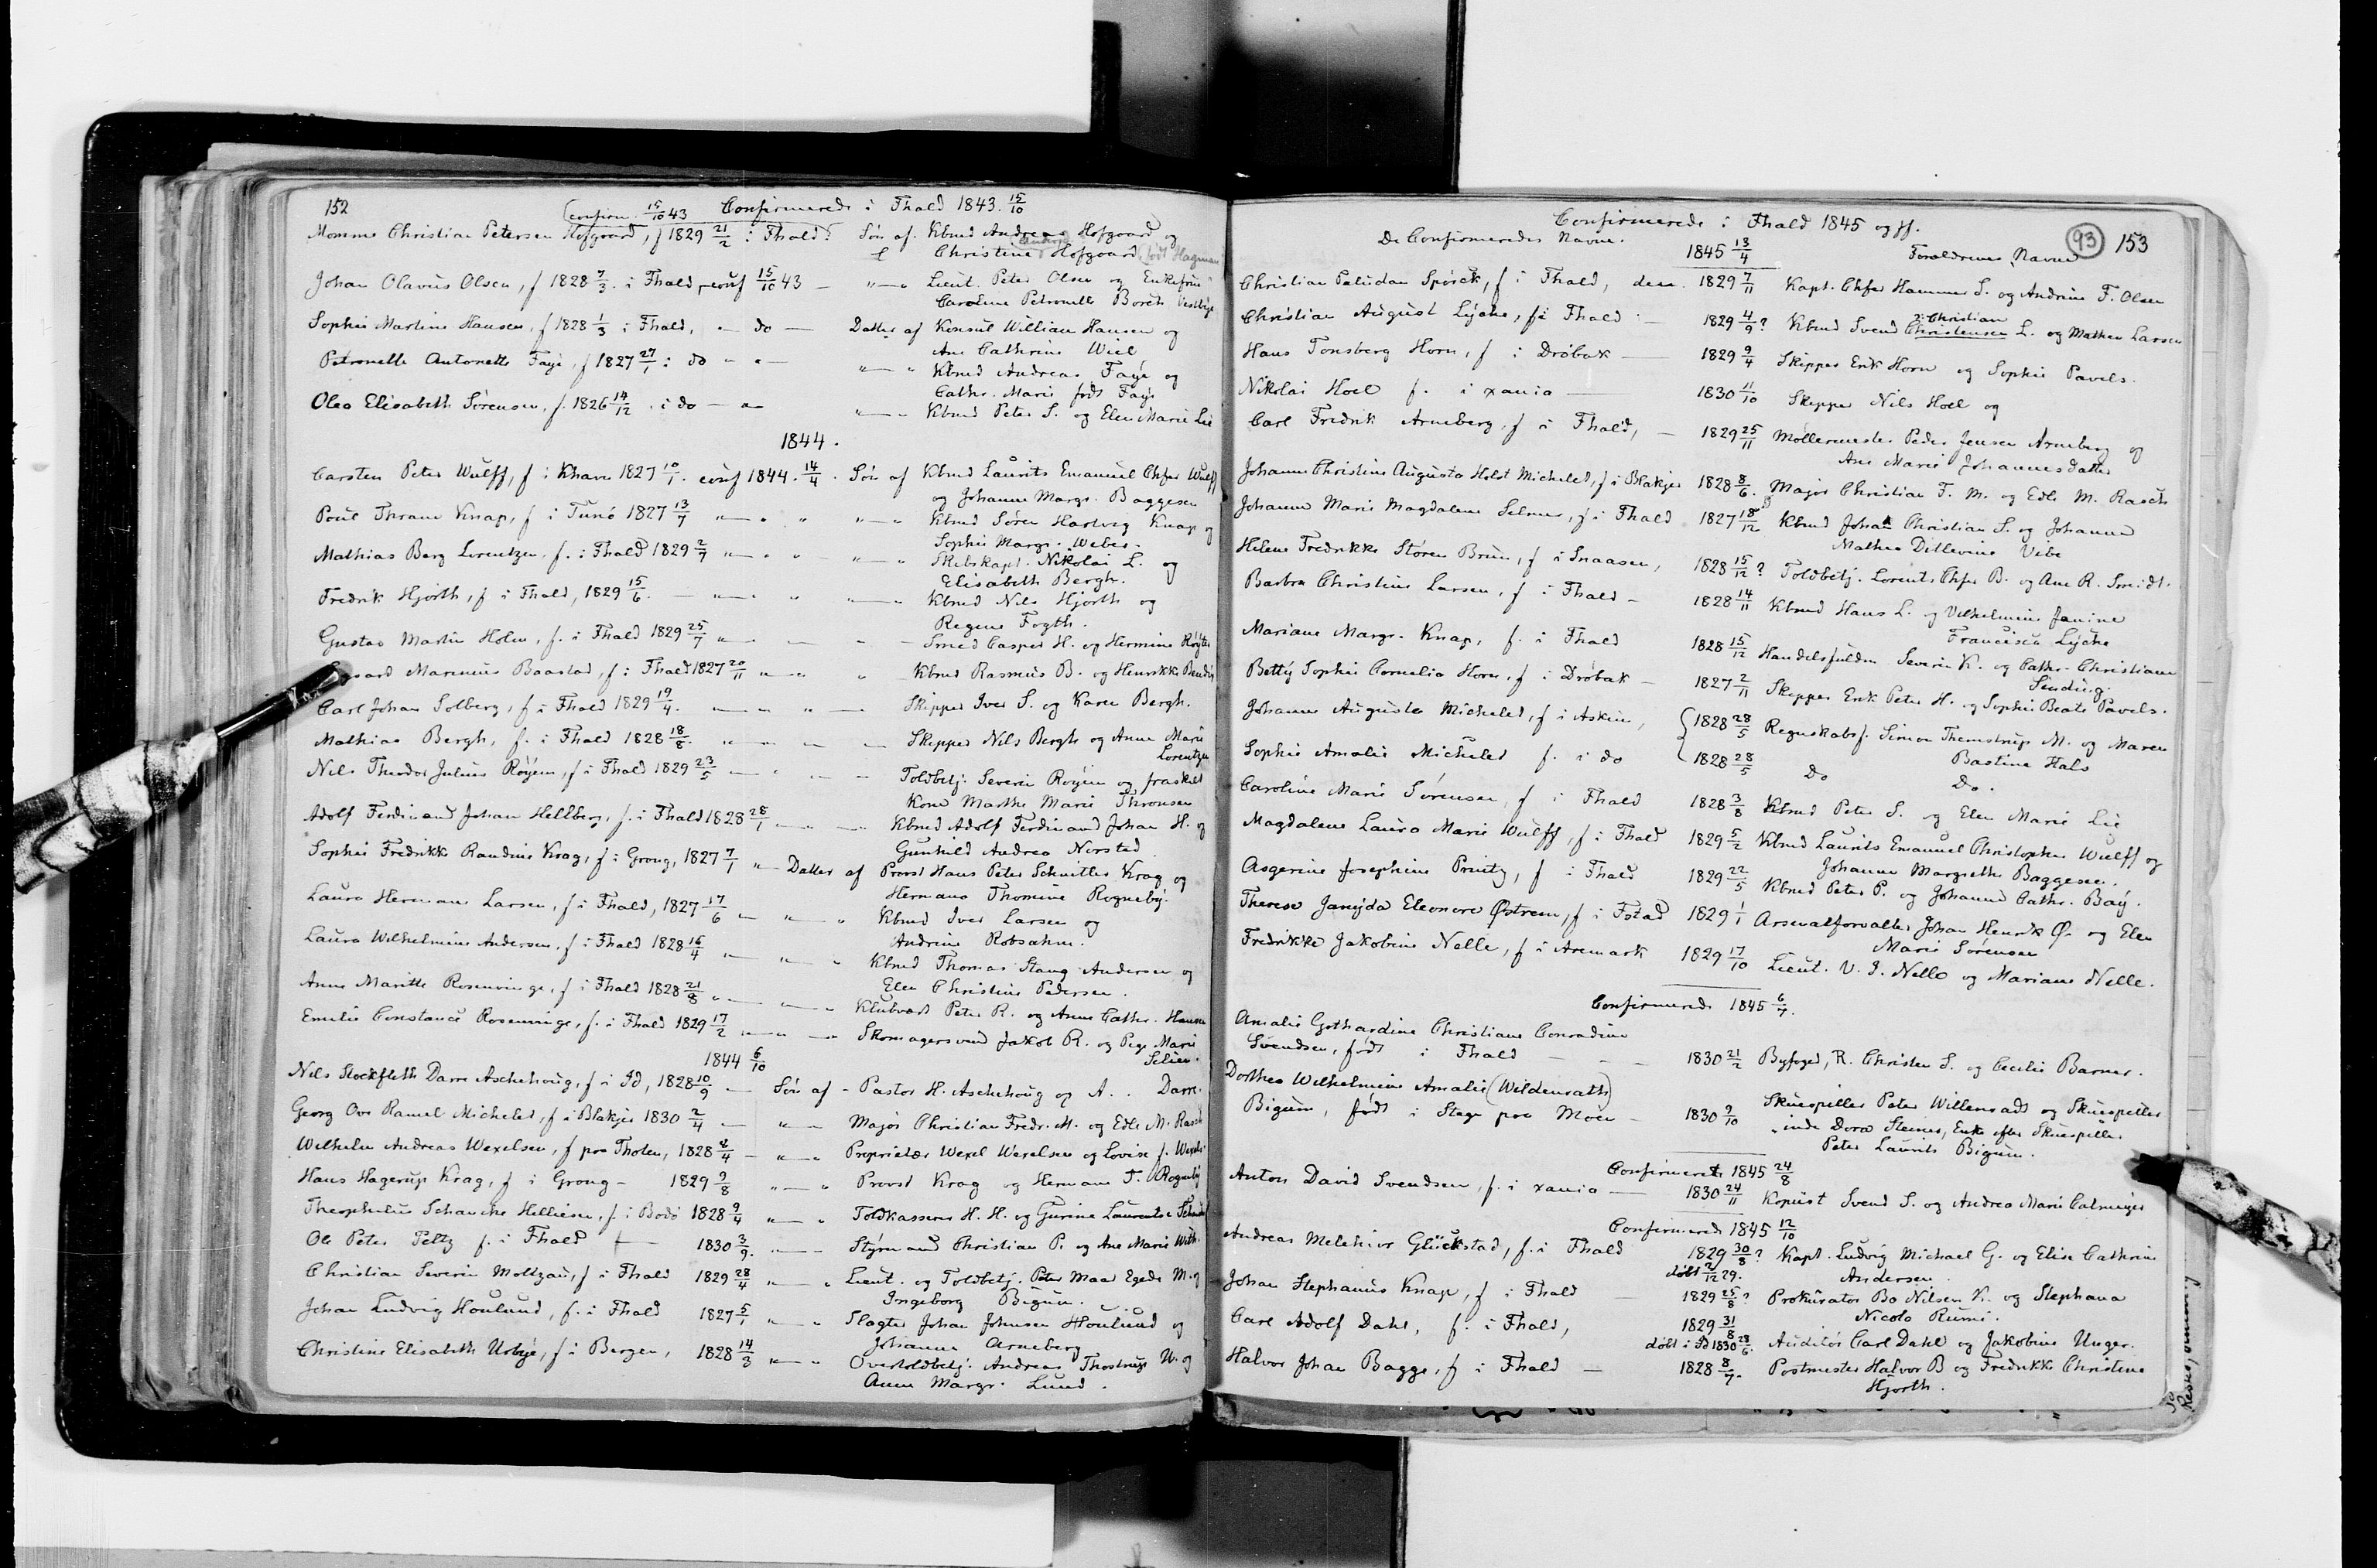 152
Confirmerede i Fhald 1843. 15/10
(confirm. 15/10 43
Momme Christian Petersen Hofgaard, f 1829 21/2 i Fhald? Søn af Kbmd Andreas Hofgaard og
Christine Hofgaard (født Hagman
Johan Olavus Olsen, f 1828 7/3 i Fhald, conf 15/10 43 — "—" Lieut. Peter Olsen og Enkefrue
Caroline Petronelle Borch Vestbye
Sophie Martine Hansen, f 1828 1/3 i Fhald, " do — Datter af Konsul William Hansen og
Ane Cathrine Wiel
Petronelle Antonette Faye, f 1827 27/1 i do " " — "—" Kbmd Andreas Faye og
Cathr. Marie født Faye
Olea Elisabeth Sørensen, f. 1826 14/12 . i do — " "—" Kbmd Peter S. og Elen Marie Lie
1844.
Carsten Peter Wulff, f i Khavn 1827 10/1. conf 1844. 14/4. Søn af Kbmd Laurits Emanuel Chfer Wulff
og Johanne Margr. Baggesen
Poul Thrane Knap, f i Tunø 1827 13/7 "—" " "—" Kbmd Søren Hartvig Knap og
Sophie Margr. Weber.
Mathias Berg Lorentzen, f. i Fhald 1829 2/7 "—" " "—" Skibskapt. Nikolai L. og
Elisabeth Bergh.
Fredrik Hjorth, f i Fhald, 1829 15/6. — "—" " "—" Kbmd Nils Hjorth og
Regine Fogth.
Gustav Martin Holm, f. i Fhald 1829 25/7 "— — " — Smed Casper H. og Hermine
Marinius Baastad, f i Fhald 1827 20/11 "—" " Kbmd Rasmus B. og Henrikke
Carl Johan Solberg, f i Fhald 1829 19/4. —"—" " — Skipper Iver S. og Karen Bergh.
Mathias Bergh, f. i Fhald 1828 18/8. "—" — — Skipper Nils Bergh og Anne Marie
Lorentzen
Nils Theodor Julius Røyem, f i Fhald 1829 23/5 —" " — Toldbetj. Severin Røyem og fraskilt
Kone Marthe Marie Thronsen
Adolf Ferdinand Johan Hellberg, f. i Fhald 1828 28/1 —"—" Kbmd Adolf Ferdinand Johan H. og
Gunhild Andrea Norstad
Sophie Fredrikke Randine Krag, f i Grong, 1827 7/1 "— Datter af Provst Hans Peter Schnitler Krag og
Hermana Thomine Rogneby.
Laura Hermane Larsen, f i Fhald, 1827 17/6 "— "—" Kbmd Iver Larsen og
Andrine Robsahm.
Laura Wilhelmine Andersen, f i Fhald 1828 16/4 "— "—" Kbmd Thomas Stang Andersen og
Elen Christine Pedersen.
Anne Maritte Rosenvinge, f i Fhald 1828 21/8 "— "—" Klubvært Peter R. og Anne Cathr. Hansen
Emilie Constance Rosenvinge, f. i Fhald 1829 17/2 "—"—" Skomagersvend Jakob R. og Marie
1844 6/10
Nils Stockfleth Darre Aschehoug, f i Id, 1828 10/9 — Søn af - Pastor H. Aschehoug og A. . Darre.
Georg Ove Ramel Michelet, f i Blakjer 1830 2/4 — "—" Major Christian Fredr. M. og Edle M. Rasch
Wilhelm Andreas Wexelsen, f paa Thoten, 1828 4/4 — "—" Proprietær Wexel Wexelsen og Lovise f. Wexels
Hans Hagerup Krag, f i Grong - 1829 9/8 "—" Provst Krag og Hermane T. Rogneby
Theophilus Schanche Helliesen, f. i Bodø 1828 9/4 "—" Toldkasserer H. H. og Gurine Laurentze
Ole Peter Peltz f. i Fhald — 1830 3/9. "—" Styrmand Christian P. og Ane Marie With.
Christian Severin Moltzau, f i Fhald 1829 28/4 "—" Lieut. og Toldbetj. Peter Maar Egede M. og
Ingeborg Bigum.
Johan Ludvig Houlund, f. i Fhald 1827 5/1 "—" Slagter Johan Johnsen Houlund og
Johanne Arneberg
Christine Elisabeth Urbye, f i Bergen, 1828 14/3 "—" Overtoldbetj. Andreas Thostrup U. og
Anne Margr. Lund.
Confirmerede i Fhald 1845 og ff.
93 153
De Confirmeredes Navne. 1845 13/4 Forældrenes Navne
Christian Paludan Spørck, f i Fhald, den 1829 7/11 Kapt. Chfer Hammer S. og Andrine F. Olsen
Christian August Lyche, f i Fhald — 1829 4/9? Kbmd Svend Christensen L. og Mathea Larsen
? Christian
Hans Tonsberg Horn, f i Drøbak — 1829 9/4 Skipper Erik Horn og Sophie Pavels.
Nikolai Hoel f. i xania — 1830 11/10 Skipper Nils Hoel og
Carl Fredrik Arneberg, f i Fhald, — 1829 25/11 Møllermester Peder Jensen Arneberg og
Ane Marie Johannesdatter
Johanne Christine Augusta Holst Michelet, f i Blakjer 1828 8/6. Major Christian F. M. og Edle M. Rasch
Johanne Marie Magdalene Selmer, f i Fhald 1827 18/12 Kbmd Johan Christian S. og Johanne
Mathea Ditlevine Vibe
Helene Fredrikke Støren Brun, f i Snaasen, 1828 15/12? Toldbetj. Lorents Chfer B. og Ane R. Smidt.
Barbra Christine Larsen, f i Fhald — 1828 14/11 Kbmd Hans L. og Vilhelmine Janine
Francisca Lyche
Mariane Margr. Knap, f. i Fhald 1828 15/12 Handelsfuldm. Severin K. og Cathr. Christiane
Sinding.
Betty Sophie Cornelia Horn, f i Drøbak — 1827 2/11 Skipper Erik Peter H. og Sophie Beate Pavels.
Johanne Augusta Michelet, f i Askim, 1828 28/5 Regnskabsf. Simon Themstrup M. og Maren
Bastine Hals
Sophie Amalie Michelet f. i do 1828 28/5 Do Do.
Caroline Marie Sørensen, f i Fhald 1828 3/8 Kbmd Peter S. og Elen Marie Lie
Magdalene Laura Marie Wulff, f i Fhald 1829 5/2 Kbmd Laurits Emanuel Christopher Wulff og
Johanne Margrethe Baggesen.
Asgerine Josephine Printz, f i Fhald 1829 22/5 Kbmd Peter P. og Johanne Cathr. Bay.
Therese Janyda Eleonore Østrem, f i Fstad 1829 1/1 Arsenalforvalter Johan Henrik Ø. og Elen
Marie Sørensen
Fredrikke Jakobine Nelle, f i Aremark 1829 17/10 Lieut. V. I. Nelle og Mariane Nelle.
Confirmerede 1845 6/7.
Amalie Gothardine Christiane Conradine
Svendsen, født i Fhald — — 1830 21/2 Byfoged, R. Christen S. og Cecilie Barner.
Dorthea Wilhelmine Amalie (Wildenrath)
Bigum, født i Stege paa Møen — 1830 9/10 Skuespiller Peter Willenradt og Skuespiller
inde Dora Steiner, Enke efter Skuespiller
Peter Laurits Bigum.
Confirmeret 1845 24/8
Anton David Svendsen, f. i xania — 1830 24/11 Kopiist Svend S. og Andrea Marie Calmeyer
Confirmerede 1845 12/10
Andreas Melchior Glückstad, f. i Fhald 1829 30/8? Kapt. Ludvig Michael G. og Elise Cathrine
døbt 2/12 29. Andersen.
Johan Stephanus Knap, f i Fhald — 1829 25/8? Prokurator Bo Nilsen K. og Stephana
Nicolo Rumi.
Carl Adolf Dahl, f. i Fhald, 1829 31/8.
døbt i Id 1830 28/6. Auditør Carl Dahl og Jakobine Unger.
Halvor Johan Bagge, f i Fhald — 1828 8/7. Postmester Halvor B og Fredrikke Christine
Hjorth.